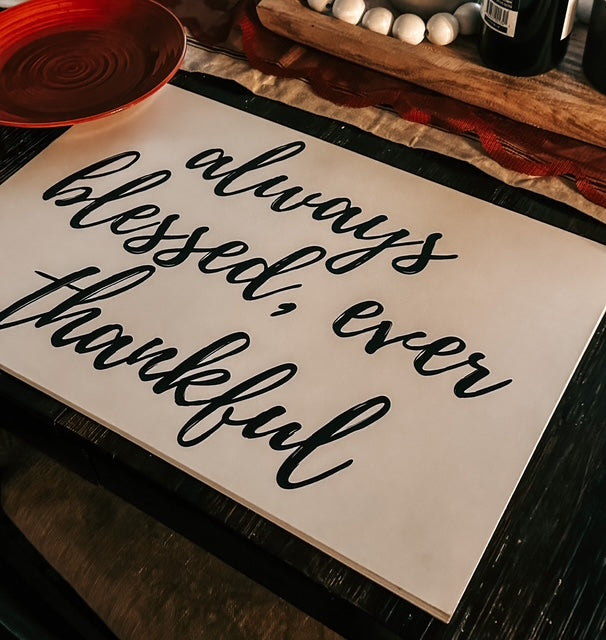 always
blessed, ever
thankful